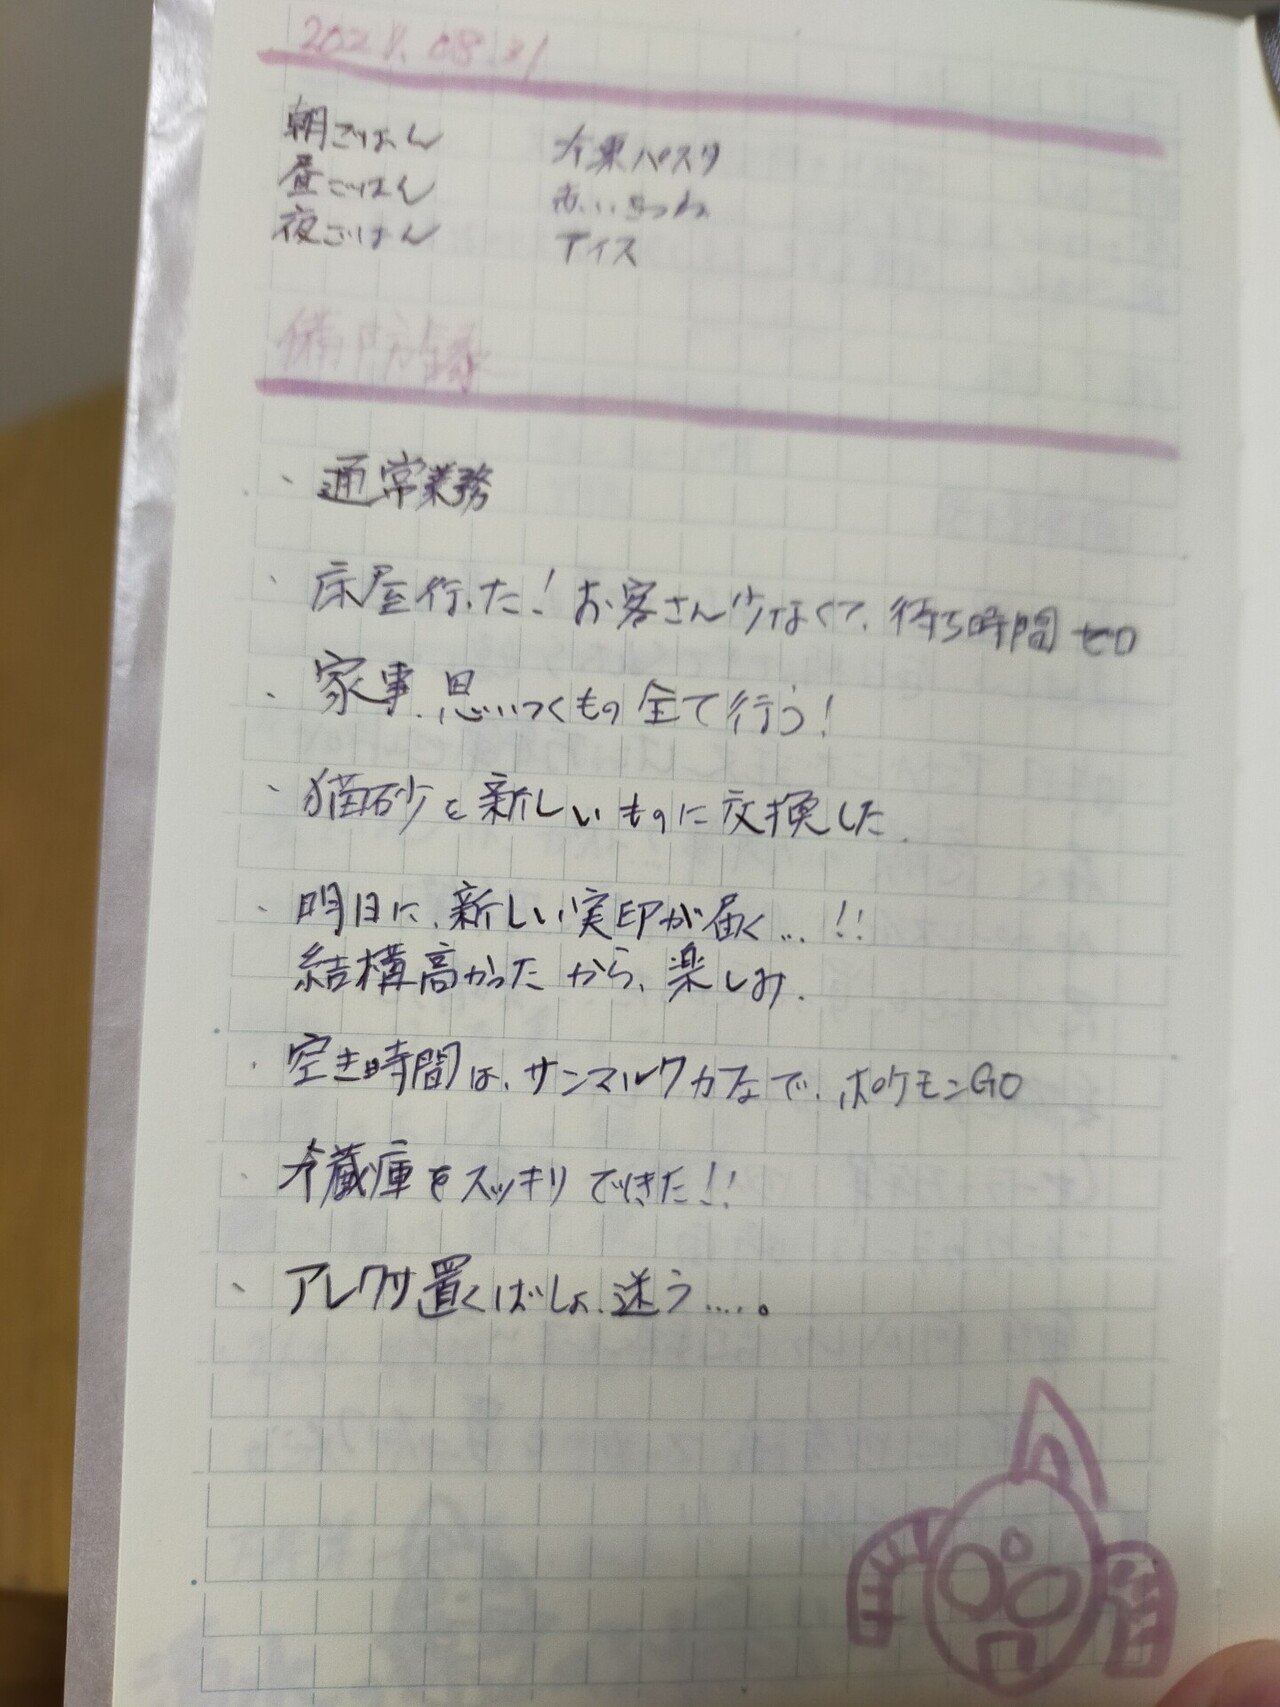 2021.08.31
朝ごはん 冷凍パスタ
昼ごはん 赤いきつね
夜ごはん アイス
備防録
・通常業務
・床屋行った!お客さん少なくて、待ち時間ゼロ
・家事、思いつくもの全て行う!
・猫砂を新しいものに交換した
・明日に、新しい実印が届く...!!
結構高かったから、楽しみ。
・空き時間は、サンマルクカフェで、ポケモンGO
・冷蔵庫をスッキリできた!!
・アレクサ置くばしょ、迷う....。